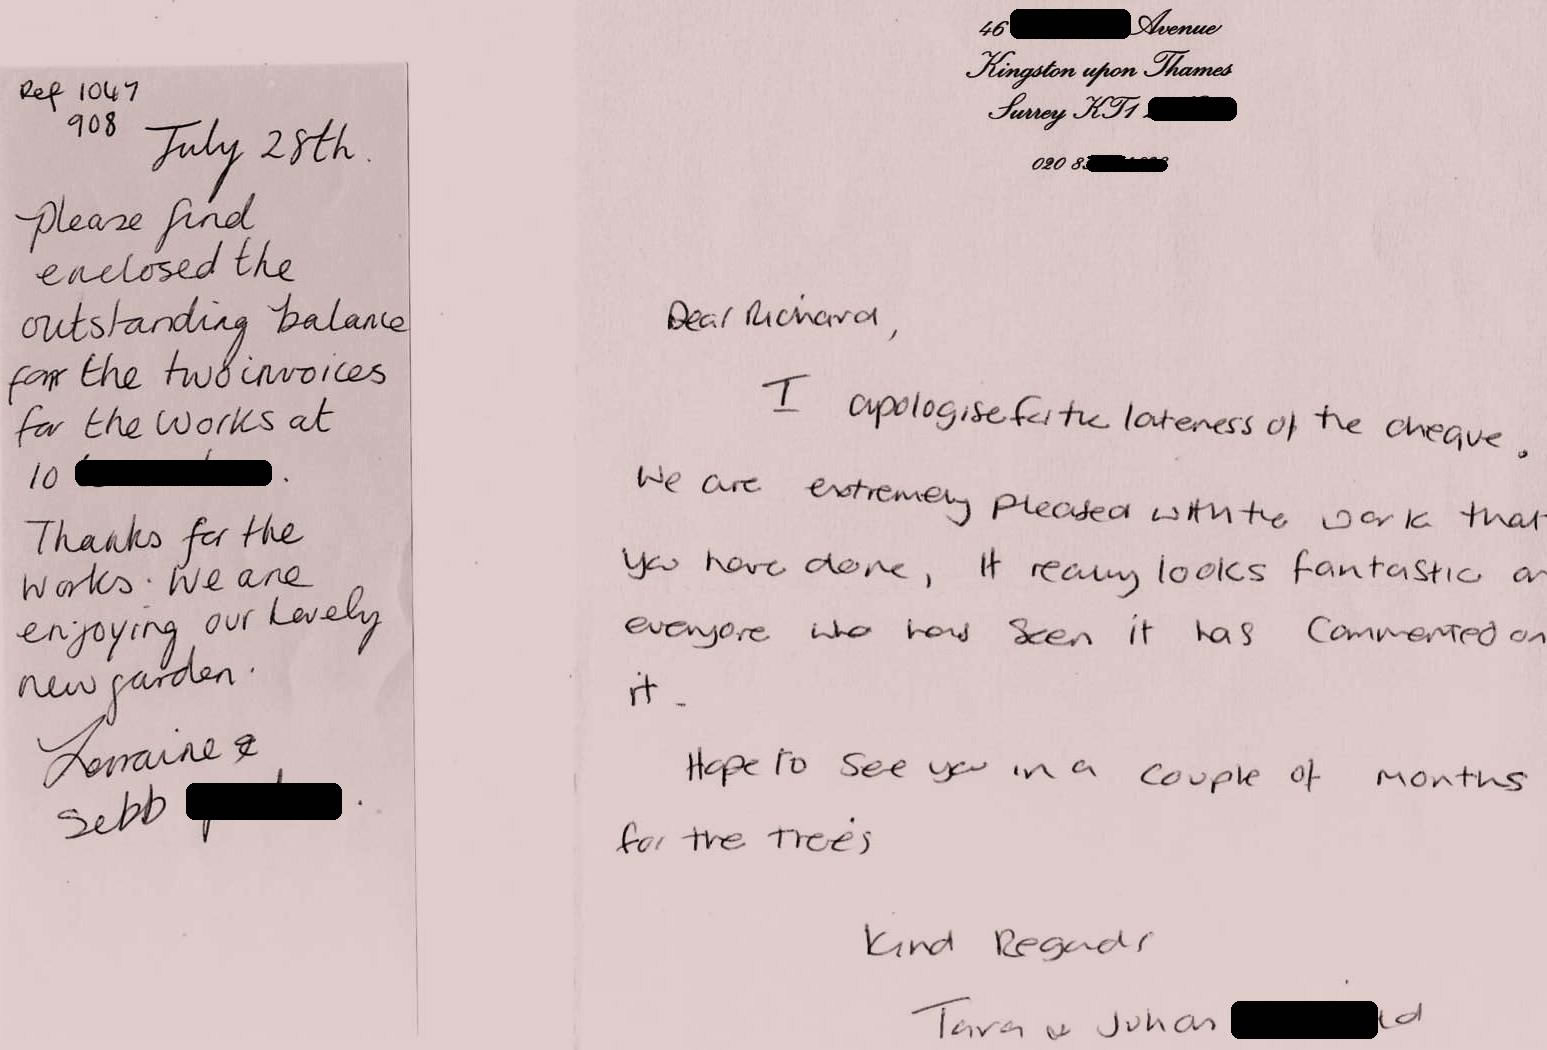 Ref 1047
908
July 28th.
please find
enclosed the
outstanding balance
for the two invoices
for the works at
10 .
Thanks for the
works. We are
enjoying our lovely
new garden.
Lorraine &
Sebb .
46 Avenue
Kingston upon Thames
Surrey KT1
020 8
Dear Richard,
I apologise for the lateness of the cheque.
We are extremely pleased with the work that
you have done, It really looks fantastic an
everyone who has seen it has commented on
it.
Hope to see you in a couple of months
for the trees
Kind Regards
Tara & Julian ld